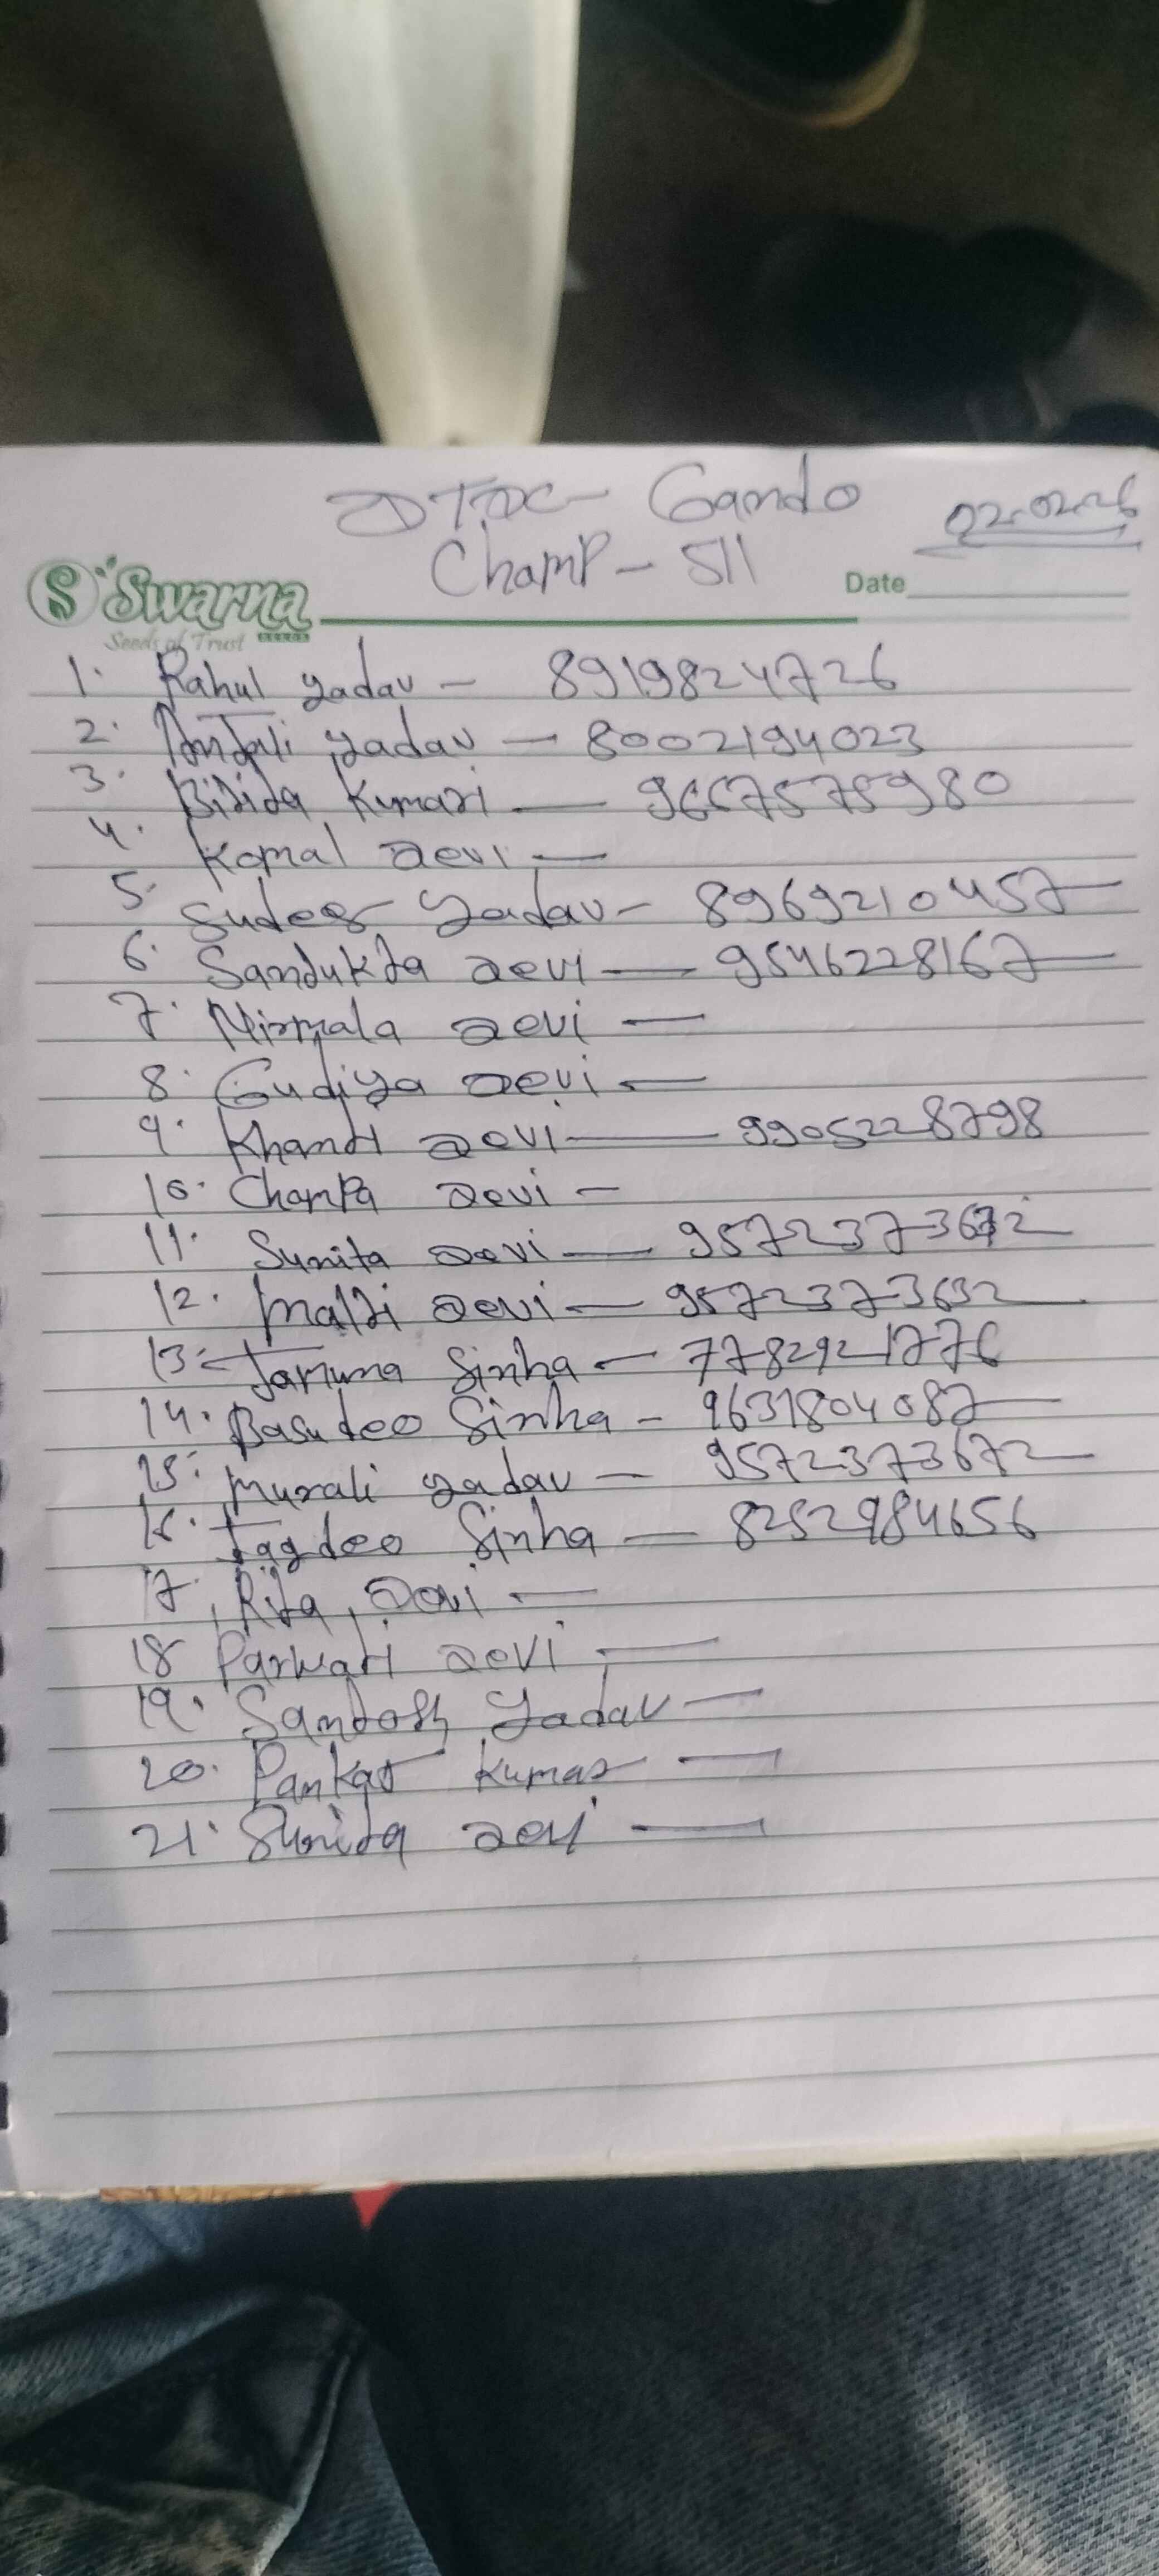 DTDC - Gando
02-02-26
Champ - 511
Swarna
Seeds of Trust
Date
1. Rahul yadav - 8919824726
2. Anjali yadav - 8002194023
3. Kumari - 9667575980
4. Komal Devi -
5. yadav - 8969210457
6. Devi - 9546228167
7. Nirmala Devi -
8. Gudiya Devi -
9. Devi - 9905228798
10. Champa Devi -
11. Sunita Devi -
12. Malti Devi - 9572373632
13. Sinha - 7782921776
14. Basudeo Sinha - 9631804087
15. Murali yadav - 9572373672
16. Jagdeo Sinha - 8252984656
17. Rita Devi -
18 Parwati Devi -
19. Santosh yadav -
20. Pankaj Kumar -
21. Sunita Devi -